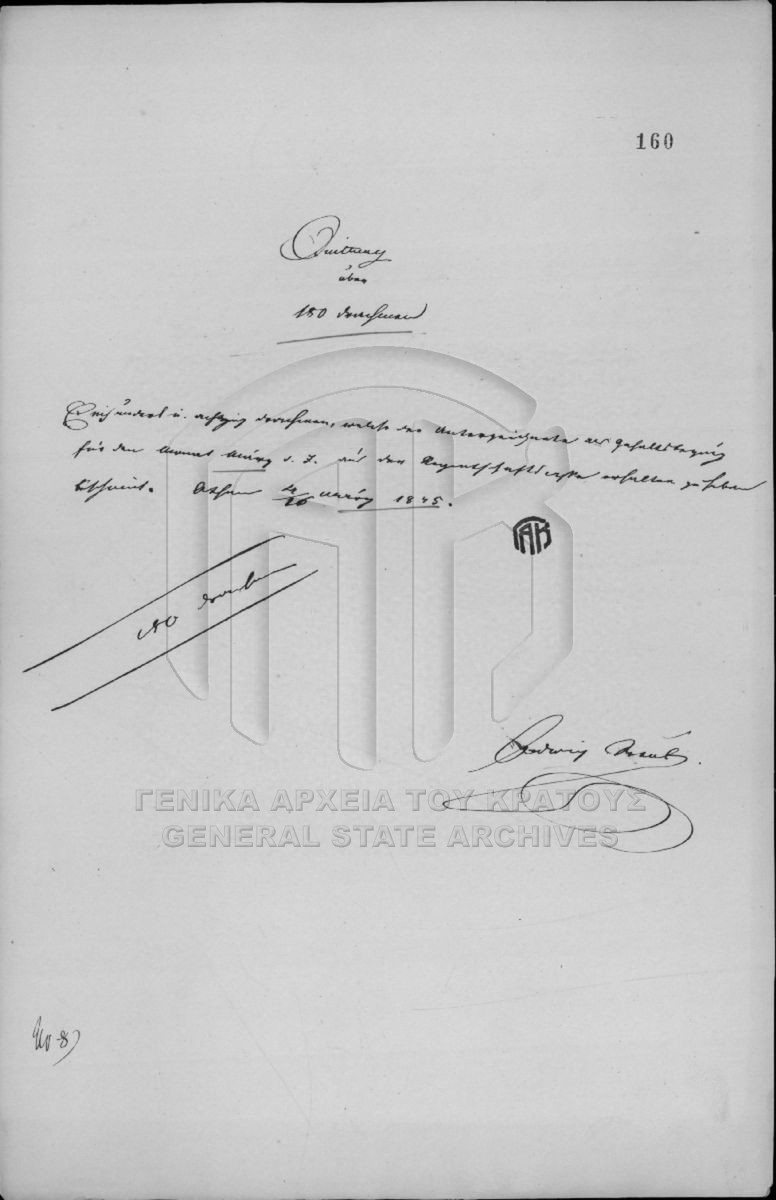 160
Quittung
über
180 Drachmen
Einhundert u. achtzig Drachmen, welche der Unterzeichnete als Gehaltsbezug
für den Monat März d. J. aus der Regentschaftscasse erhalten zu haben
bescheint. Athen 4/16 März 1835.
180 Drach
ΓΑΚ
Ludwig
ΓΕΝΙΚΑ ΑΡΧΕΙΑ ΤΟΥ ΚΡΑΤΟΥΣ
GENERAL STATE ARCHIVES
No 8)